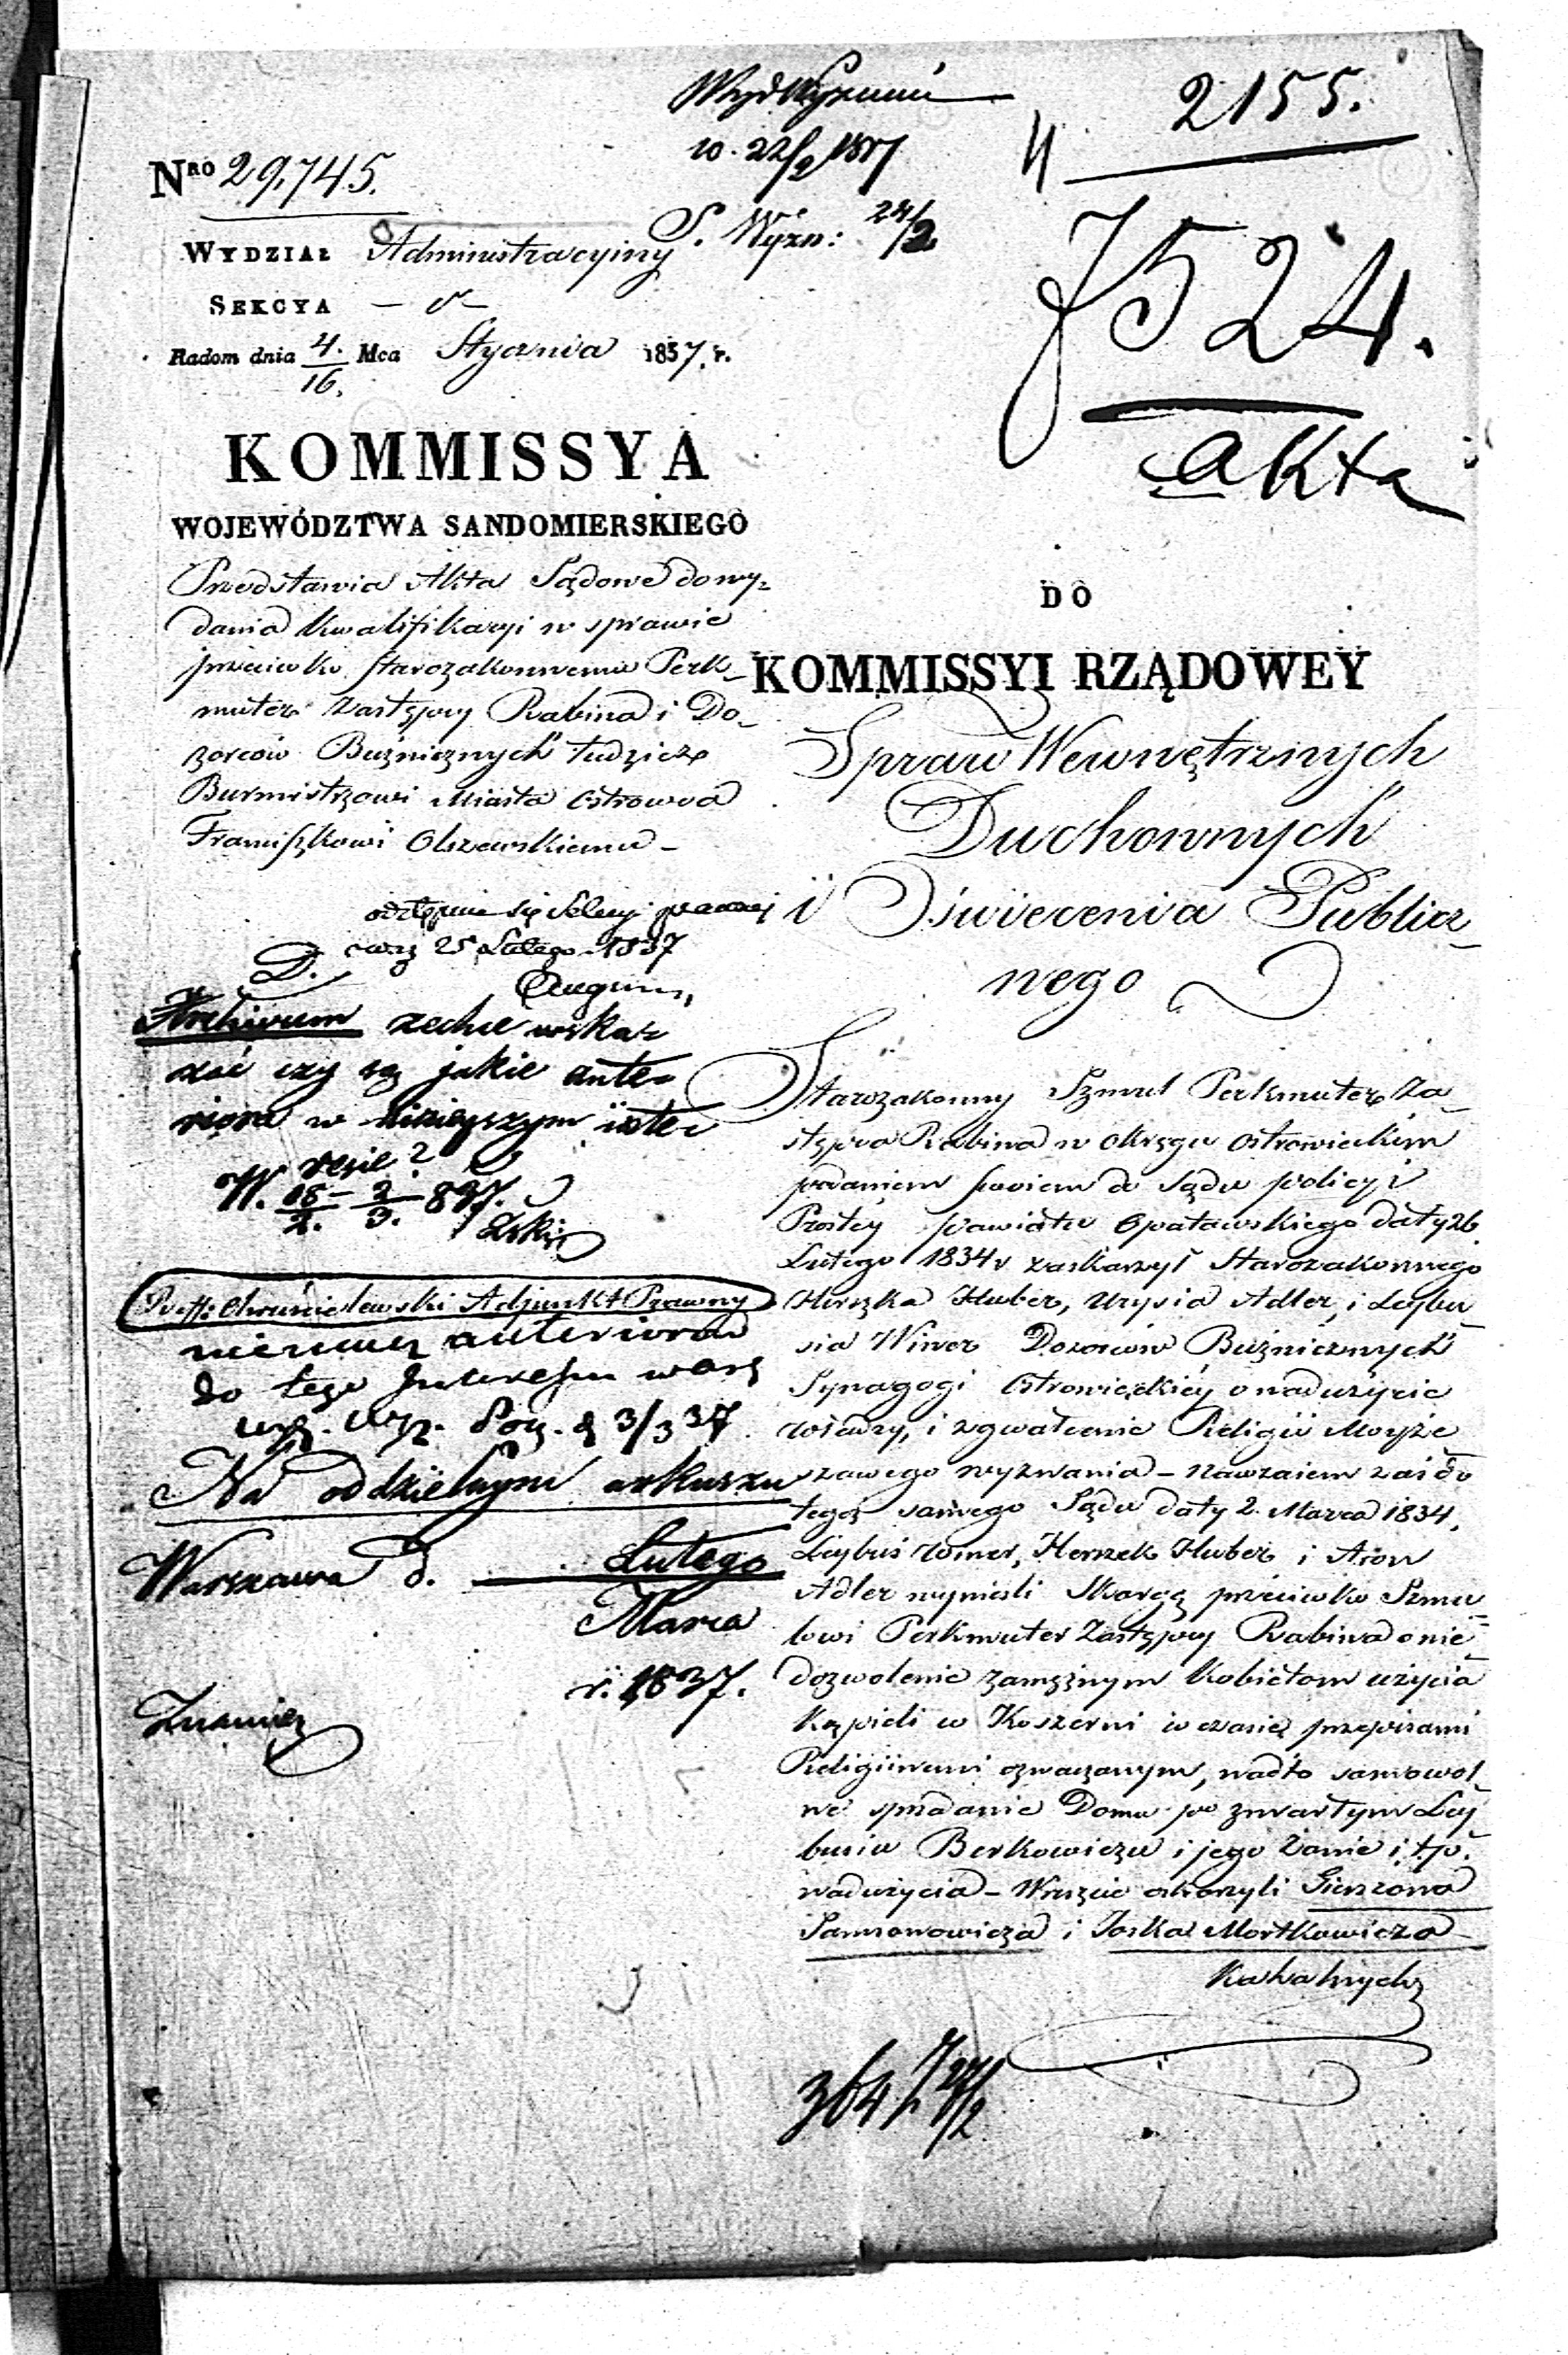 2155.
w. 22/2 1837
Nro 29,745.
S. Wyzn: 24/2
WYDZIAŁ Administracyiny
7524.
SEKCYA
Radom dnia 4./16. Mca Stycznia 1837. r.
akta
KOMMISSYA
WOJEWÓDZTWA SANDOMIERSKIEGO
Przedstawia Akta Sądowe do wy-
dania kwalifikacyi w sprawie
przeciwko starozakonnemu Perk-
muter Zastępcy Rabina i Do-
zorców Bużnicznych tudzież
Burmistrzowi Miasta Ostrowca
Franciszkowi Olszewskiemu -
odstępuie się Sekcyi prawnej
25 Lutego 1837
D.
Archivum zechce wska-
zać czy są jakie ante-
riora w ninieyszym inte-
resie?
W. 18/2. - 2/3. 837.
Chruścielewski Adjunkt Prawny
niemasz anteriorów
do tego Interessu
3/3 37
Na oddzielnym arkuszu
Warszawa d. Lutego
Marca
r. 1837.
DO
KOMMISSYI RZĄDOWEY
Spraw Wewnętrznych
Duchownych
i Oświecenia Publicz-
nego
Starozakonny Szmul Perkmuter Za-
stępca Rabina w Okręgu Ostrowieckim
podaniem swoiem do Sądu Policyi
Prostey Powiatu Opatowskiego daty 26
Lutego 1834 r zaskarżył Starozakonnego
Herszka Huber, Urysia Adler, i Leybu-
sia Winer Dozorców Bużnicznych
Synagogi Ostrowieckiey o nadużycie
władzy, i zgwałcenie Religii Moyże-
szowego wyznania - nawzaiem zaś do
tegoż samego Sądu daty 2. Marca 1834.
Leybuś Winer, Herszek Huber i Aron
Adler wynieśli Skargę przeciwko Szmu-
lowi Perkmuter Zastępcy Rabina o nie
dozwolenie zamężnym Kobietom użycia
Kąpieli w Koszerni w czasie przepisami
Religiinemi oznaczonym, nadto samowol-
ne sprzedanie Domu po zmarłym Ley-
busiu Berkowiczu i jego Żonie i t.p.
nadużycia - Wreszcie oskarżyli Gierszona
Samsonowicza i Joska Mortkowicza
Kahalnych
364